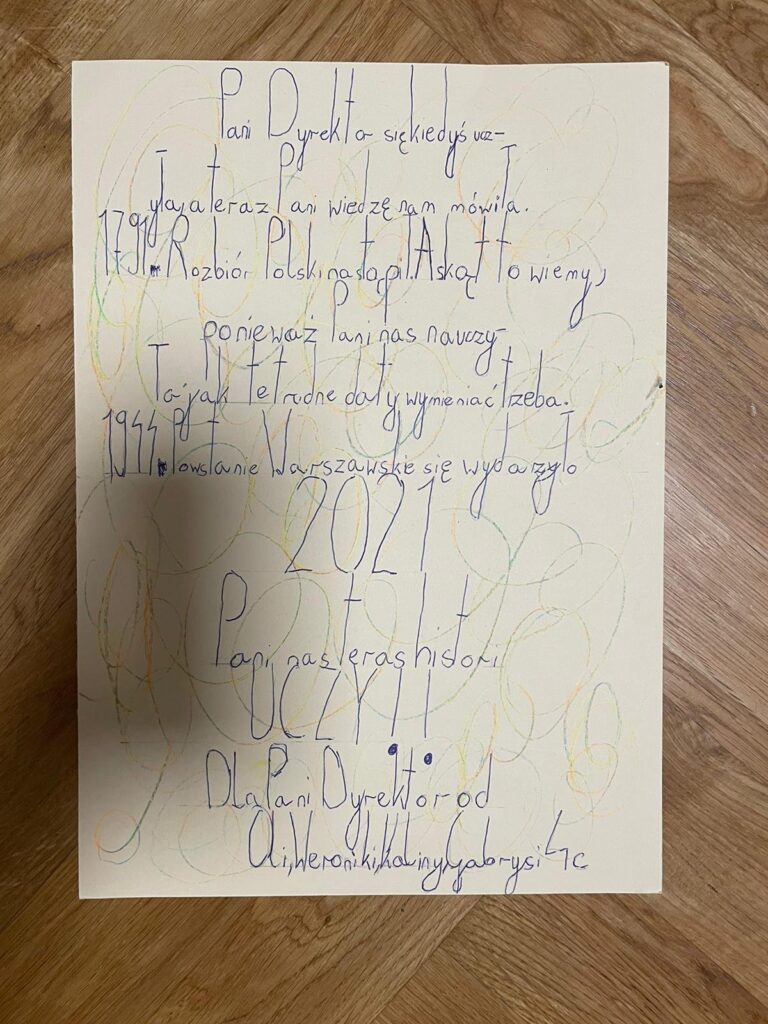 Pani Dyrekto siękiedyś ucz-
yła,a teraz Pani wiedzę nam mówiła.
1791.Rozbiór Polski nastąpił.A skąt to wiemy,
ponieważ Pani nas nauczy-
ła jak te trudne daty wymieniać trzeba.
1944.Powstanie Warszawskie się wydażyło
2021
Pani nas teras histori
UCZY!!
Dla Pani Dyrektor od
Oli,Weroniki,Kaliny,Gabrysi 4c